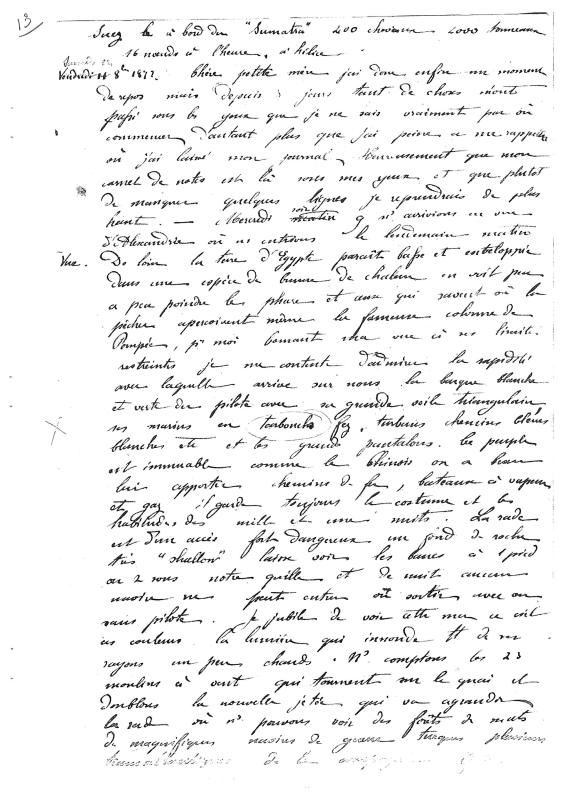 13
Suez le à bord du "Sumatra" 400 chevaux 4000 tonneaux
16 nœuds à l'heure, à hélice
Vendredi 11 8bre 1872. Chère petite mère j'ai donc enfin un moment
de repos mais depuis 3 jours tant de choses m'ont
passé sous les yeux que je ne sais vraiment par où
commencer d'autant plus que j'ai peine a me rappeler
où j'ai laissé mon journal. Heureusement que mon
carnet de notes est là sous mes yeux et que plutot
de manquer quelques lignes je reprendrais de plus
haut. — Mercredi matin soir ns arrivions en vue
d'Alexandrie où ns entrions le lendemain matin
Vue. De loin la terre d'Egypte parait basse et enveloppée
dans une espèce de brume de chaleur on voit peu
a peu poindre le phare et ceux qui savent où la
pêcher aperçoivent même la fameuse colonne de
Pompée, pr moi bornant ma vue à ses limites
restreintes je me contente d'admirer la rapidité
avec laquelle arrive sur nous la barque blanche
et verte du pilote avec sa grande voile triangulaire
ses marins en tarbouch fez, turbans chemises bleues
blanches etc et les grands pantalons. Ce peuple
est immuable comme le Chinois on a beau
lui apporter chemins de fer, bateaux à vapeur
et gaz il garde toujours le costume et les
habitudes des mille et une nuits. La rade
est d'un accès fort dangereux un fond de roche
très "shallow" laisse voir les bancs à 1 pied
ou 2 sous notre quille et de nuit aucun
navire ne peut entrer où sortir avec ou
sans pilote. Je jubile de voir cette mer ce ciel
ces couleurs la lumière qui innonde tt de ses
rayons un peu chauds. Ns comptons les 23
moulins à vent qui tournent sur le quai et
doublons la nouvelle jetée qui va agrandir
la rade où ns pouvons voir des forêts de mats
de magnifiques navires de guerre turques plusieurs
transatlantiques de la